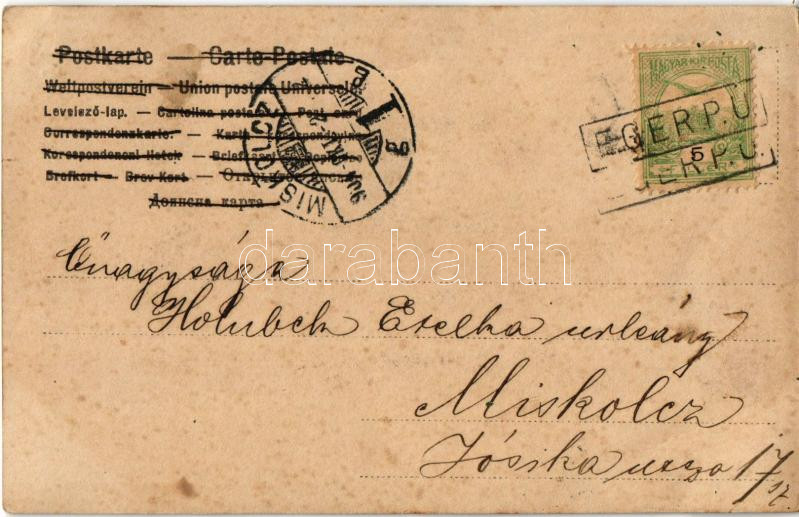 Postkarte — Carte Postale
Weltpostverein — Union postale Universelle
Levelező-lap. — Cartolina postale
Correspondenzkarte. — Karta
Korespondencni listek —
Brefkort — Brev-Kort —
Дописна карта
MISKOLCZ
MAGYAR KIR. POSTA
5
EGER P.U.
EGER P.U.
darabanth
Őnagysága
Holubek Etelka urleány
Miskolcz
Jósika utsza 17
sz.